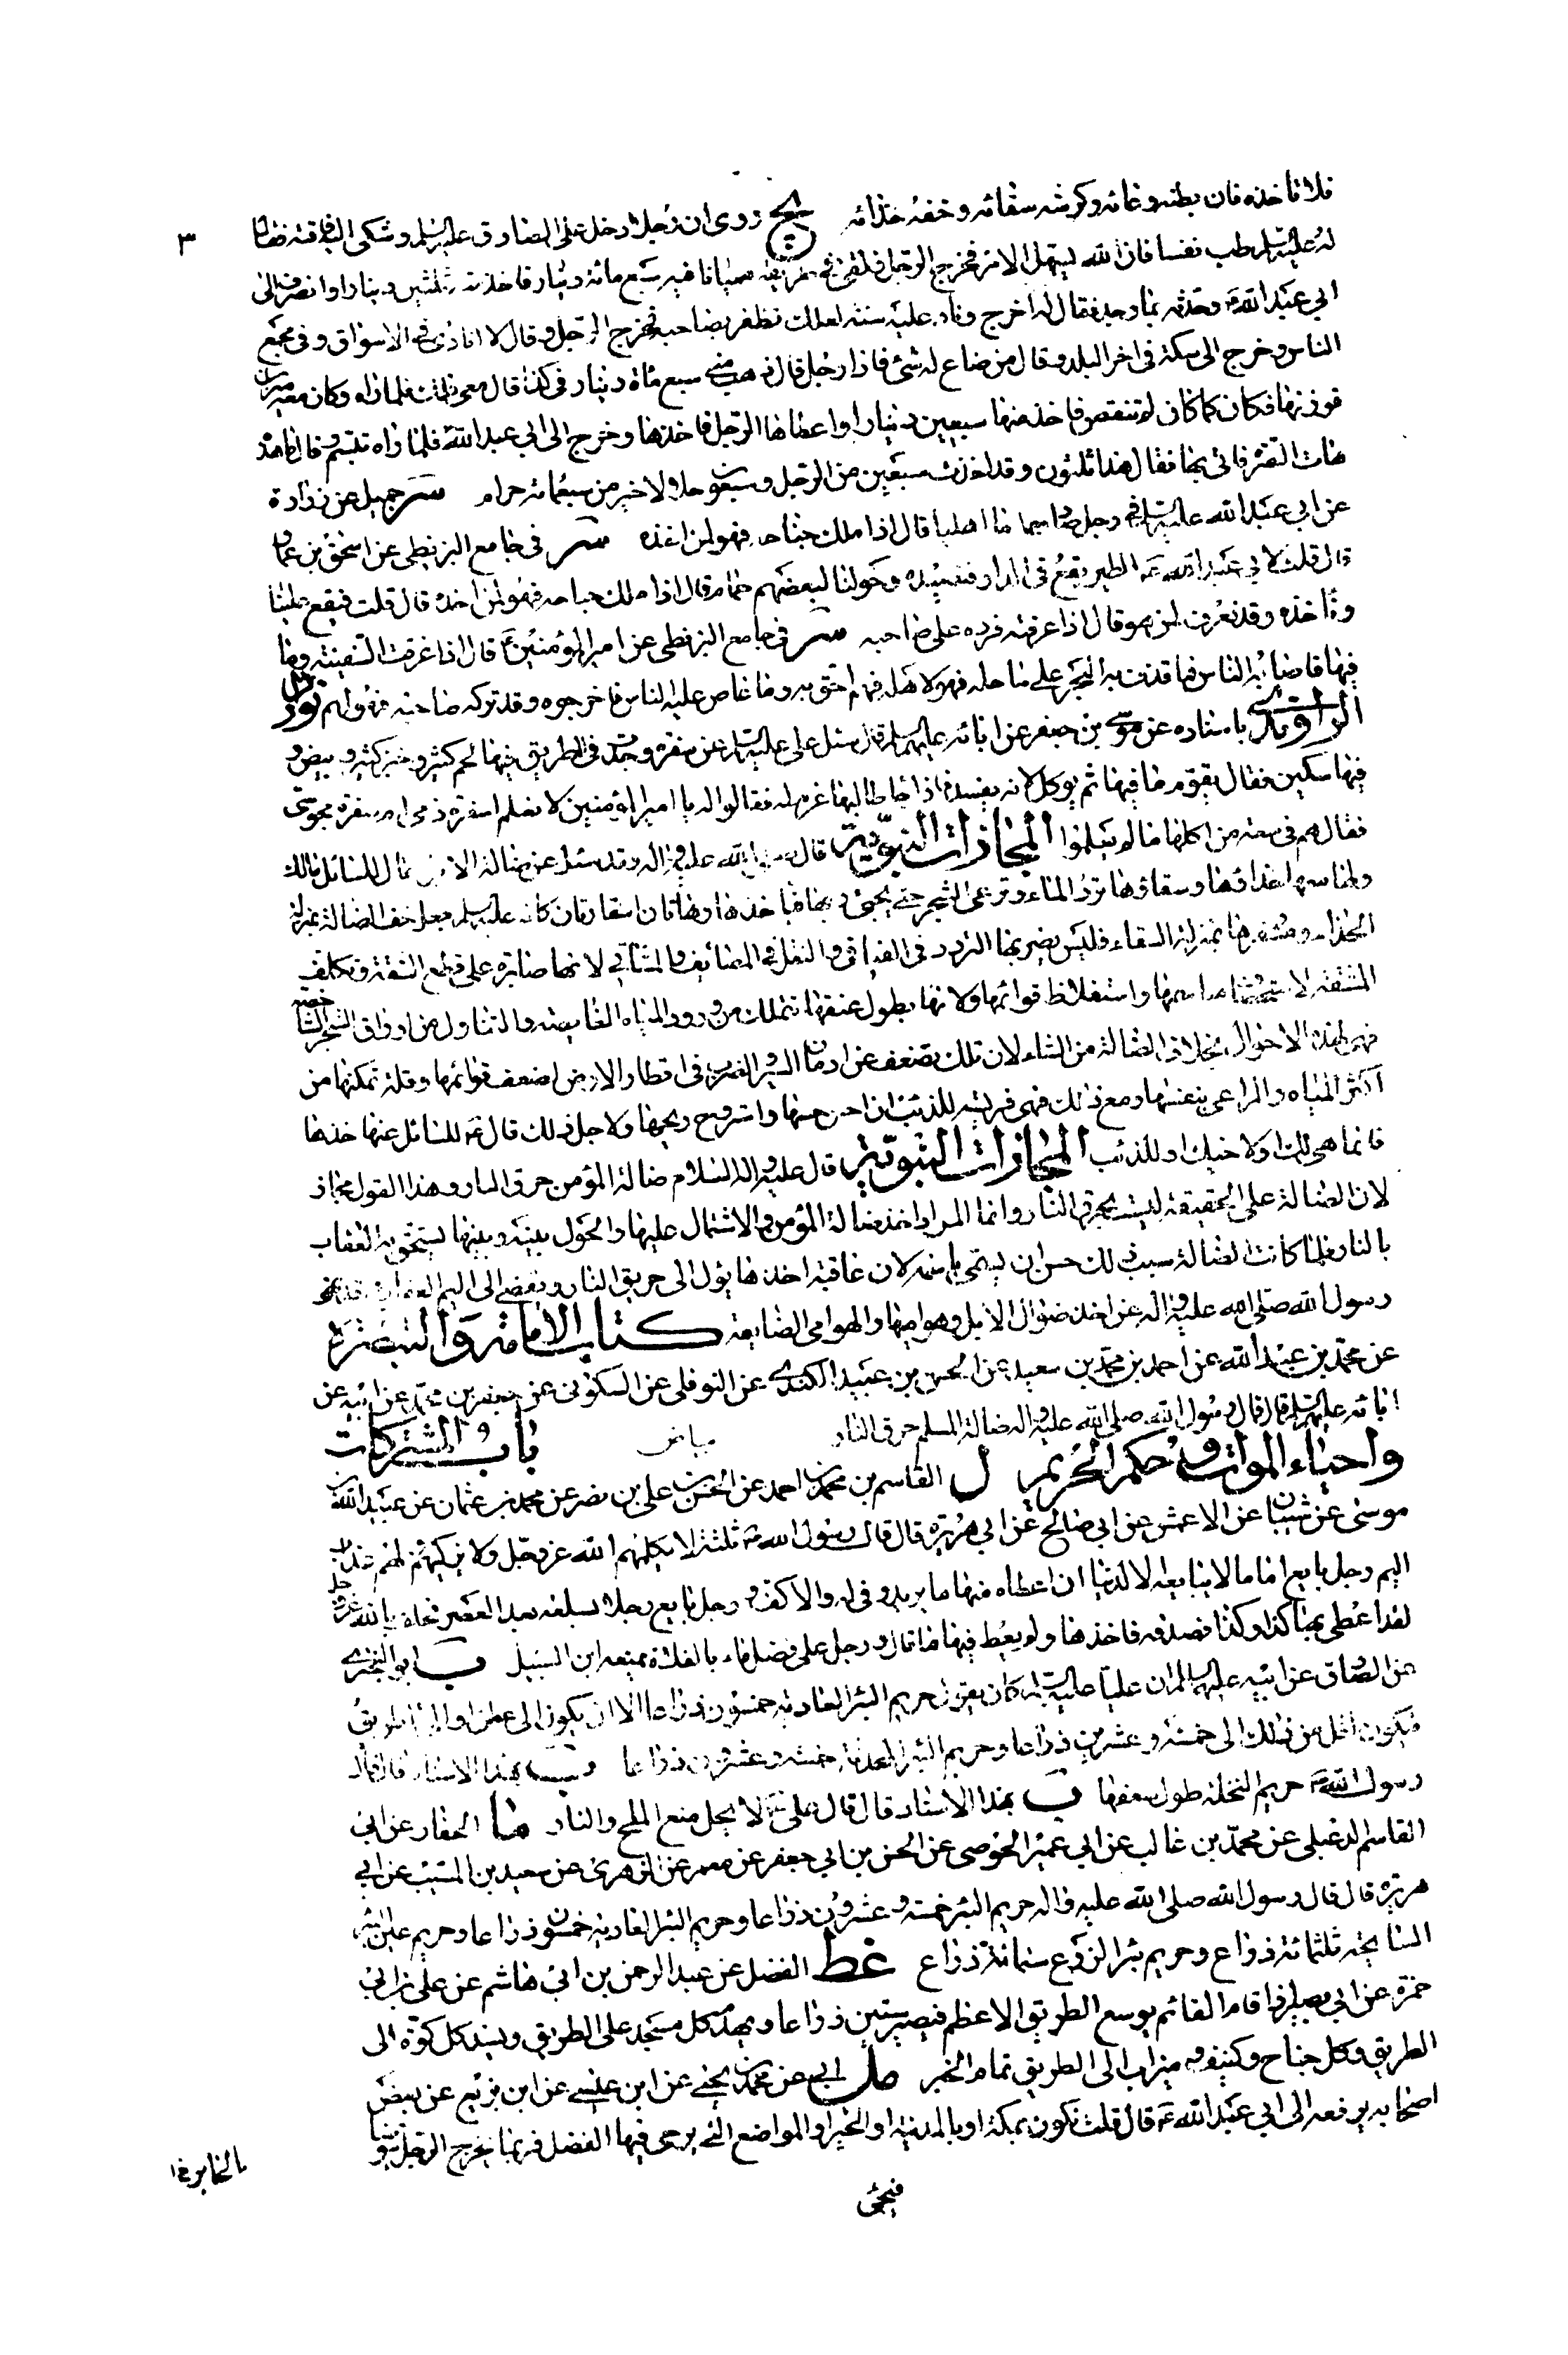 فلا تاخذه فان بطنه وعائه وكرشه سقائه وخفه حذائه يج روى ان رجلا دخل على الصادق عليه السلم وشكى اليه فاقته فقال
٣
له عليه السلم طب نفسا فان الله يسهل الامر فخرج الرجل فلقى في طريقه هميانا فيه سبع مائة دينار فاخذ منه ثلثين دينارا وانصرف الى
ابي عبد الله ع وحدثه بما وجد فقال له اخرج وناد عليه سنة لعلك تظفر بصاحبه فخرج الرجل وقال لا انادى في الاسواق وفى مجمع
الناس وخرج الى سكة في اخر البلد وقال من ضاع له شئ فاذا رجل قال ذهب منى سبع مائة دينار في كذا قال معى ذلك فلما راه وكان معه ميزان
فوزنها فكان كما كان لم تنقص فاخذ منها سبعين دينارا واعطاها الرجل فاخذها وخرج الى ابى عبد الله ع فلما راه تبسم وقال ما هذه
هات الصرة فاتى بها فقال هذا ثلثون وقد اخذت سبعين من الرجل وسبعون حلالا خير من سبعمائة حرام سر جميل عن زرارة
عن ابي عبد الله عليه السلم في رجل صاد حماما اهليا قال اذا ملك جناحه فهو لمن اخذه سر في جامع البزنطى عن اسحق بن عمار
قال قلت لابي عبد الله ع الطير يقع في الدار فنصيده وحولنا لبعضهم حمام قال اذا ملك جناحه فهو لمن اخذه قال قلت فيقع علينا
وناخذه وقد نعرف لمن هو قال اذا عرفته فرده على صاحبه سر في جامع البزنطى عن امير المؤمنين ع قال اذا غرقت السفينة وما
فيها فاصابه الناس فما قذف به البحر على ساحله فهو لاهله فهم احق به وما غاص عليه الناس فاخرجوه وقد تركه صاحبه فهو لهم نوادر
الراوندى باسناده عن موسى بن جعفر عن ابائه عليهم السلم قال سئل على عليه السلم عن سفرة وجدت في الطريق فيها لحم كثير وخبز كثير وبيض و
فيها سكين فقال يقوم ما فيها ثم يوكل لانه يفسد فاذا جاء طالبها غرم له فقالوا له يا امير المؤمنين لا نعلم اسفرة ذمى ام سفرة مجوسى
فقال هم في سعة من اكلها ما لم يعلموا المجازات النبوية قال صلى الله عليه واله وقد سئل عن ضالة الابل فقال للسائل مالك
ولها معها حذاؤها وسقاؤها ترد الماء وترعى الشجر حتى يجئ ربها فياخذها وهاتان استعارتان كانه عليه السلم جعل خف الضالة بمنزلة
الحذاء ومشفرها بمنزلة السقاء فليس يضر بها التردد في الفيافى والتنقل في المصائف والمشاتي لانها صابرة على قطع الشقة وتكلف
المشقة لاستحصاف مناسمها واستغلاظ قوائمها ولانها بطول عنقها تتمكن من ورود المياه الغايصة والتناول من اوراق الشجر الشاخصة
فهى بهذه الاحوال بخلاف الضالة من الشاء لان تلك تضعف عن ادمان السير والضرب في اقطار الارض لضعف قوائمها وقلة تمكنها من
اكثر المياه والمراعى بنفسها ومع ذلك فهى فريسة للذئب ان احس حسها واستروح ريحها ولاجل ذلك قال ع للسائل عنها خذها
فانما هى لك او لاخيك او للذئب المجازات النبوية قال عليه واله السلام ضالة المؤمن حرق النار وهذا القول مجاز
لان الضالة على الحقيقة ليست بحرق النار وانما المراد اخذ ضالة المؤمن والاشتمال عليها والحول بينه وبينها يستحق به العقاب
بالنار فلما كانت الضالة سبب ذلك حسن ان يسمى باسمه لان عاقبة اخذها يؤل الى حريق النار وتفضى الى اليم العقاب وقد نهى
رسول الله صلى الله عليه واله عن اخذ ضوال الابل وهواميها والهوامى الضايعة كتاب الامامة والتبصرة
عن محمد بن عبد الله عن احمد بن محمد بن سعيد عن الحسن بن عبيد الكندى عن النوفلى عن السكونى عن جعفر بن محمد عن ابيه عن
ابائه عليهم السلم قال قال رسول الله صلى الله عليه واله ضالة المسلم حرق النار بياض باب المشتركات
واحياء الموات وحكم الحريم ل القاسم بن محمد بن احمد عن الحسن بن على بن نصر عن محمد بن عثمان عن عبيد الله بن
موسى عن شيبان عن الاعمش عن ابى صالح عن ابى هريرة قال قال رسول الله ص ثلثة لا يكلمهم الله عز وجل ولا يزكيهم ولهم عذاب
اليم رجل بايع اماما لا يبايعه الا لدنيا ان اعطاه منها ما يريد وفى له والا كف ورجل بايع رجلا بسلعة بعد العصر فحلف بالله عز وجل
لقد اعطى بها كذا وكذا فصدقه فاخذها ولم يعط فيها ما قال ورجل على فضل ماء بالفلاة يمنعه ابن السبيل ب ابو البخترى
عن الصادق عن ابيه عليهما السلم ان عليا عليه السلم كان يقول حريم البئر العادية خمسون ذراعا الا ان يكون الى عطن او الى طريق
فيكون اقل من ذلك الى خمسة وعشرين ذراعا وحريم البئر المحدثة خمسة وعشرون ذراعا ب بهذا الاسناد قال قال
رسول الله ص حريم النخلة طول سعفها ب بهذا الاسناد قال قال على ع لا يحل منع الملح والنار ما الحفار عن ابى
القاسم الدعبلى عن محمد بن غالب عن ابي عمير الحوضى عن الحسن بن ابى جعفر عن معمر عن الزهرى عن سعيد بن المسيب عن ابى
هريرة قال قال رسول الله صلى الله عليه واله حريم البئر خمسة وعشرون ذراعا وحريم البئر العادية خمسون ذراعا وحريم عين البئر
السايحة ثلثمائة ذراع وحريم بئر الزرع ستمائة ذراع غط الفضل عن عبد الرحمن بن ابى هاشم عن على بن ابى
حمزة عن ابى بصير اذا قام القائم يوسع الطريق الاعظم فيصير ستين ذراعا ويهدم كل مسجد على الطريق ويسد كل كوة الى
الطريق وكل جناح وكنيف وميزاب الى الطريق تمام الخبر مل ابى عن محمد بن يحيى عن ابن عيسى عن ابن بزيع عن بعض
اصحابه يرفعه الى ابى عبد الله ع قال قلت نكون بمكة او بالمدينة او الحير او المواضع التى يرجى فيها الفضل فربما يخرج الرجل يتوضا
فيجئ